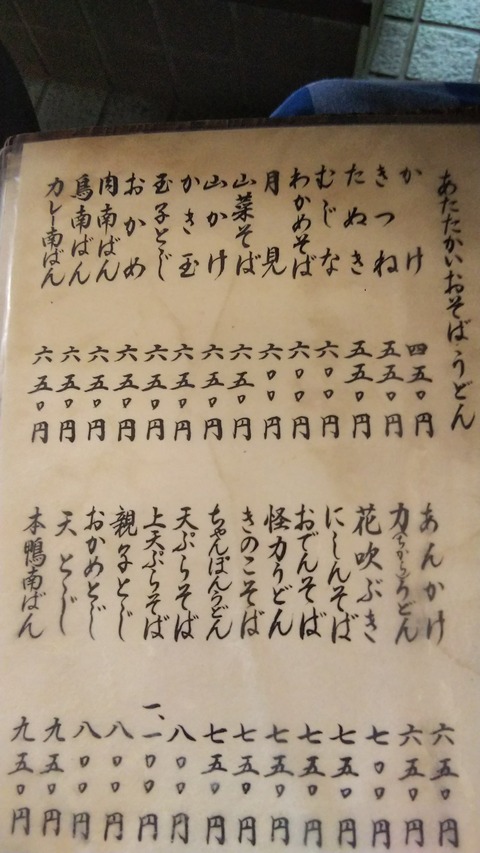 あたたかいおそばうどん
かけ 四五〇円
きつね 五五〇円
たぬき 五五〇円
むじな 六〇〇円
わかめそば 六〇〇円
月見 六〇〇円
山菜そば 六五〇円
山かけ 六五〇円
かき玉 六五〇円
玉子とじ 六五〇円
おかめ 六五〇円
肉南ばん 六五〇円
鳥南ばん 六五〇円
カレー南ばん 六五〇円
あんかけ 六五〇円
力ちからうどん 六五〇円
花吹ぶき 七〇〇円
にしんそば 七五〇円
おでんそば 七五〇円
怪力うどん 七五〇円
きのこそば 七五〇円
ちゃんぽんうどん 七五〇円
天ぷらそば 八〇〇円
上天ぷらそば 一、一〇〇円
親子とじ 八〇〇円
おかめとじ 八〇〇円
天とじ 九五〇円
本鴨南ばん 九五〇円